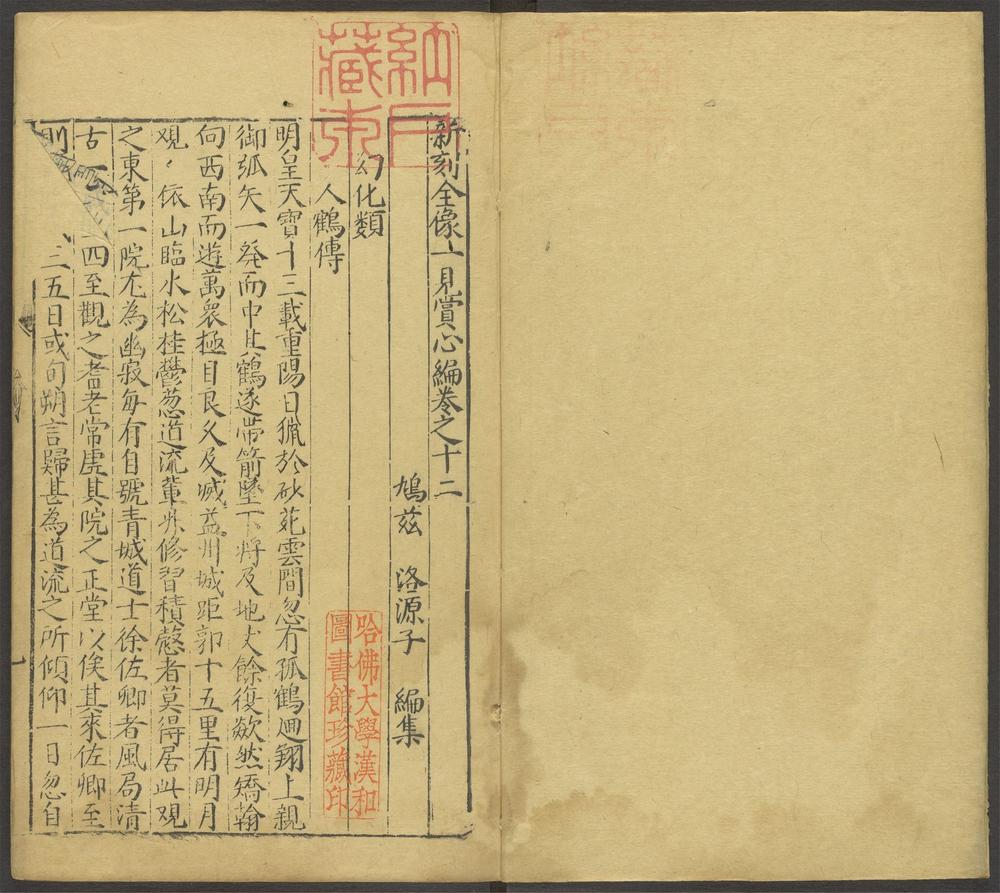 新刻全像一見賞心編卷之十二
鳩茲 洛源子 編集
幻化類
人鶴傳
明皇天寶十三載重陽日獵於砂苑雲間忽有孤鶴廻翔上親
御弧矢一發而中其鶴遂帶箭墜下將及地丈餘復歘然矯翰
向西南而遊萬衆極目良久及滅益州城距郭十五里有明月
觀〻依山臨水松桂鬱葱道流輩非修習積慤者莫得居此观
之東第一院尤為幽寂每有自號青城道士徐佐卿者風局清
古 四至觀之耆老常虗其院之正堂以俟其來佐卿至
則 三五日或旬朔言歸甚為道流之所傾仰一日忽自
哈佛大學漢和
圖書館珍藏印